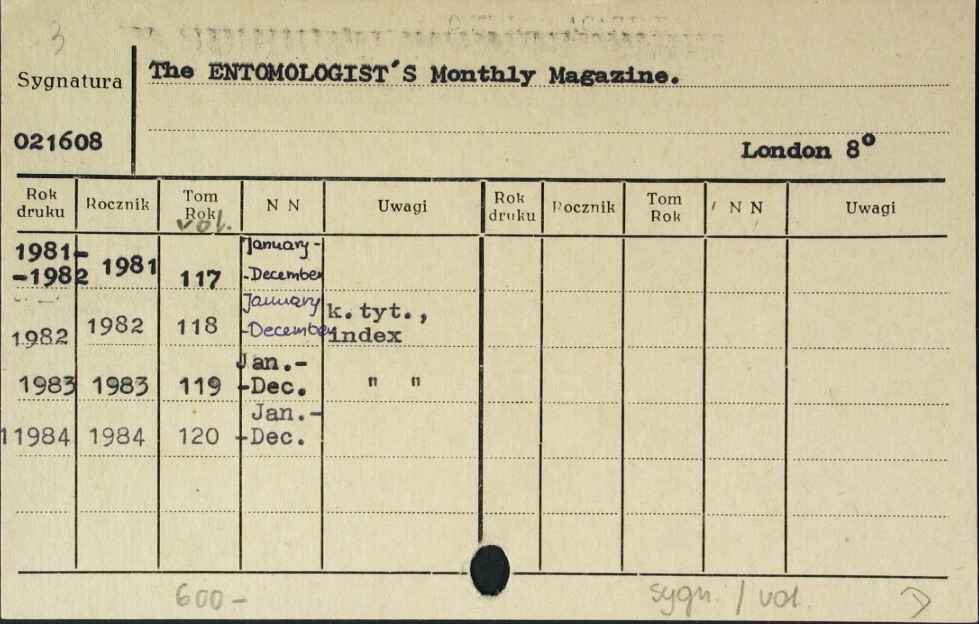 3
Sygnatura
The ENTOMOLOGIST'S Monthly Magazine.
021608
London 8°
Rok druku Rocznik Tom Rok N N Uwagi Rok druku Rocznik Tom Rok N N Uwagi
vol.
1981- -1982 1981 117 January- -December
1982 1982 118 January -December k.tyt., index
1983 1983 119 Jan.- -Dec. " "
11984 1984 120 Jan.- -Dec.
600- sygn. / vol. D